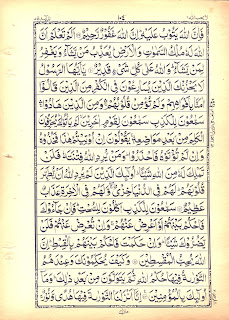 ١٠٤
فَإِنَّ اللّٰهَ يَتُوْبُ عَلَيْهِ اِنَّ اللّٰهَ غَفُوْرٌ رَّحِيْمٌ اَلَمْ تَعْلَمْ اَنَّ
اللّٰهَ لَهٗ مُلْكُ السَّمٰوٰتِ وَالْاَرْضِ يُعَذِّبُ مَنْ يَّشَآءُ وَيَغْفِرُ
لِمَنْ يَّشَآءُ وَاللّٰهُ عَلٰى كُلِّ شَيْءٍ قَدِيْرٌ يٰٓاَيُّهَا الرَّسُوْلُ
لَا يَحْزُنْكَ الَّذِيْنَ يُسَارِعُوْنَ فِى الْكُفْرِ مِنَ الَّذِيْنَ قَالُوْٓا
اٰمَنَّا بِاَفْوَاهِهِمْ وَلَمْ تُؤْمِنْ قُلُوْبُهُمْ وَمِنَ الَّذِيْنَ هَادُوْا
سَمّٰعُوْنَ لِلْكَذِبِ سَمّٰعُوْنَ لِقَوْمٍ اٰخَرِيْنَ لَمْ يَاْتُوْكَ يُحَرِّفُوْنَ
الْكَلِمَ مِنْۢ بَعْدِ مَوَاضِعِهٖ يَقُوْلُوْنَ اِنْ اُوْتِيْتُمْ هٰذَا فَخُذُوْهُ
وَاِنْ لَّمْ تُؤْتَوْهُ فَاحْذَرُوْا وَمَنْ يُّرِدِ اللّٰهُ فِتْنَتَهٗ فَلَنْ
تَمْلِكَ لَهٗ مِنَ اللّٰهِ شَيْـًٔا اُولٰٓئِكَ الَّذِيْنَ لَمْ يُرِدِ اللّٰهُ اَنْ يُّطَهِّرَ
قُلُوْبَهُمْ لَهُمْ فِى الدُّنْيَا خِزْيٌ وَّلَهُمْ فِى الْاٰخِرَةِ عَذَابٌ
عَظِيْمٌ سَمّٰعُوْنَ لِلْكَذِبِ اَكّٰلُوْنَ لِلسُّحْتِ فَاِنْ جَآءُوْكَ
فَاحْكُمْ بَيْنَهُمْ اَوْ اَعْرِضْ عَنْهُمْ وَاِنْ تُعْرِضْ عَنْهُمْ فَلَنْ
يَّضُرُّوْكَ شَيْـًٔا وَاِنْ حَكَمْتَ فَاحْكُمْ بَيْنَهُمْ بِالْقِسْطِ اِنَّ
اللّٰهَ يُحِبُّ الْمُقْسِطِيْنَ وَكَيْفَ يُحَكِّمُوْنَكَ وَعِنْدَهُمُ
التَّوْرٰىةُ فِيْهَا حُكْمُ اللّٰهِ ثُمَّ يَتَوَلَّوْنَ مِنْۢ بَعْدِ ذٰلِكَ وَمَآ
اُولٰٓئِكَ بِالْمُؤْمِنِيْنَ اِنَّآ اَنْزَلْنَا التَّوْرٰىةَ فِيْهَا هُدًى وَّنُوْرٌ